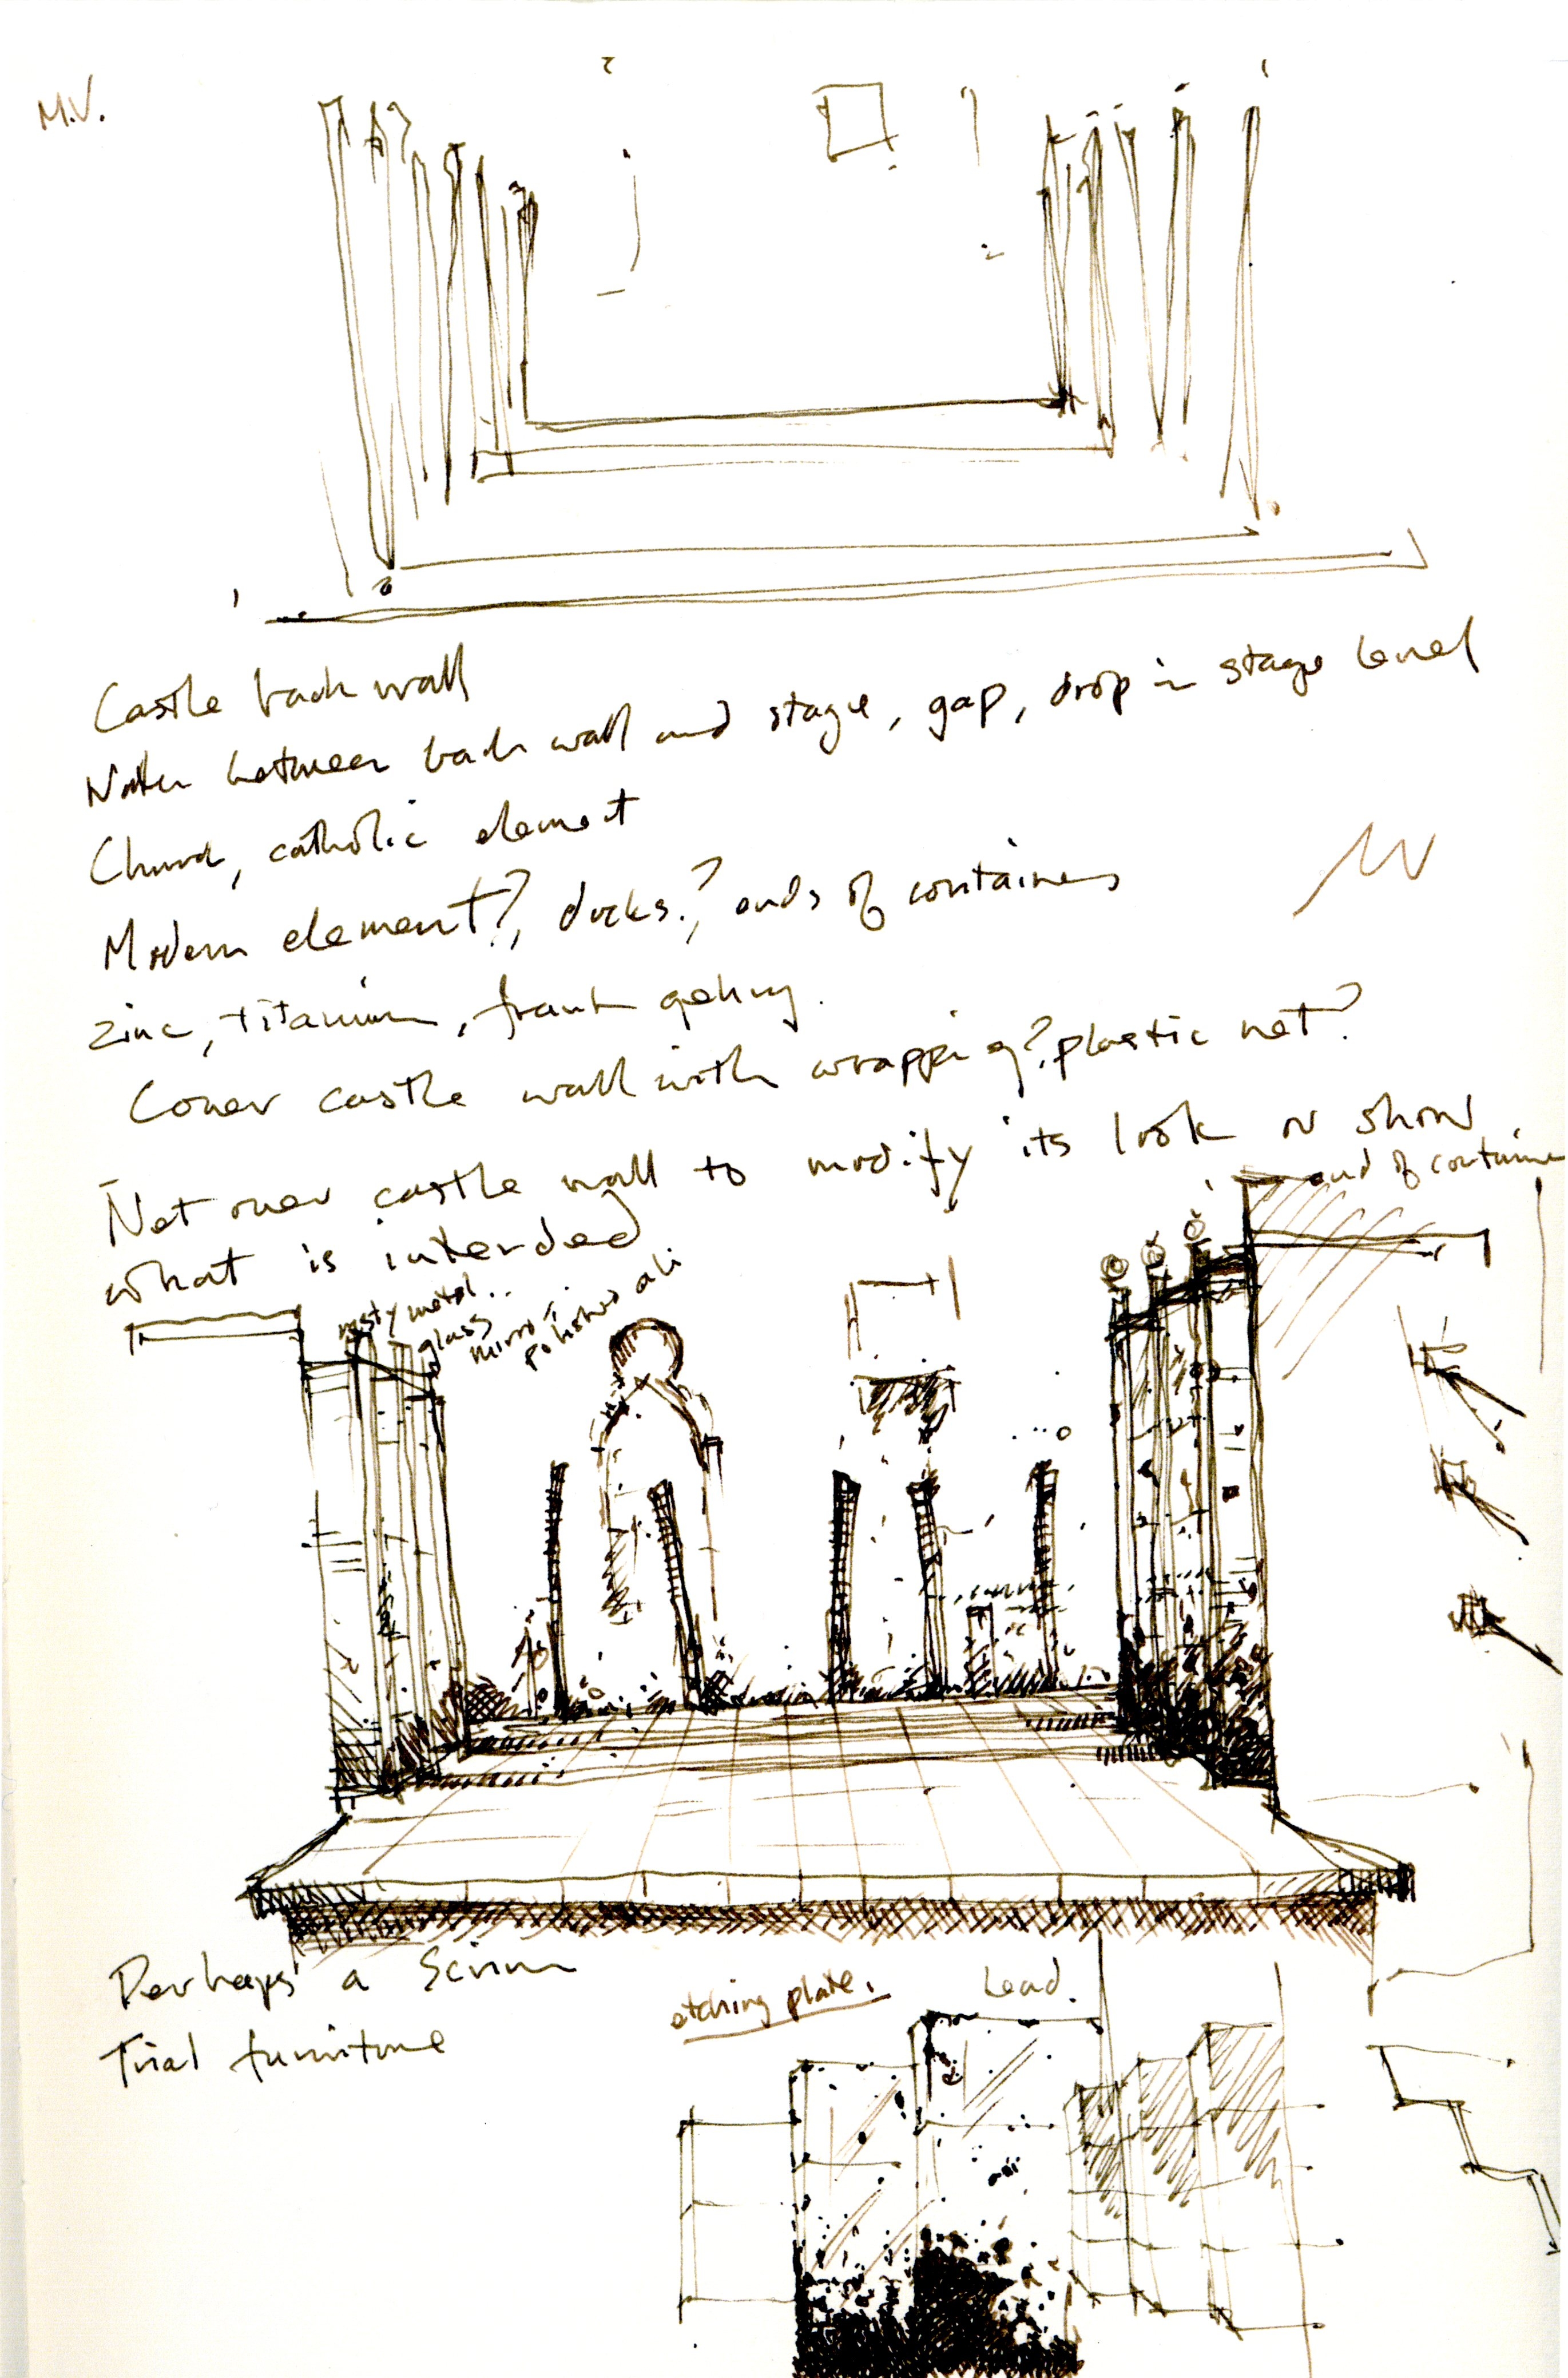 M.V.
Castle back wall
Water between back wall and stage, gap, drop in stage level
Church, catholic element
MV
Modern element?, docks?, ends of containers
Zinc, titanium, frank gehry.
Cover castle wall with wrapping?, plastic net?
Net over castle wall to modify its look or show
what is intended
end of container
rusty metal..
glass
mirror
polished ali
Perhaps a Scrim
Trial furniture
etching plate.
Lead.